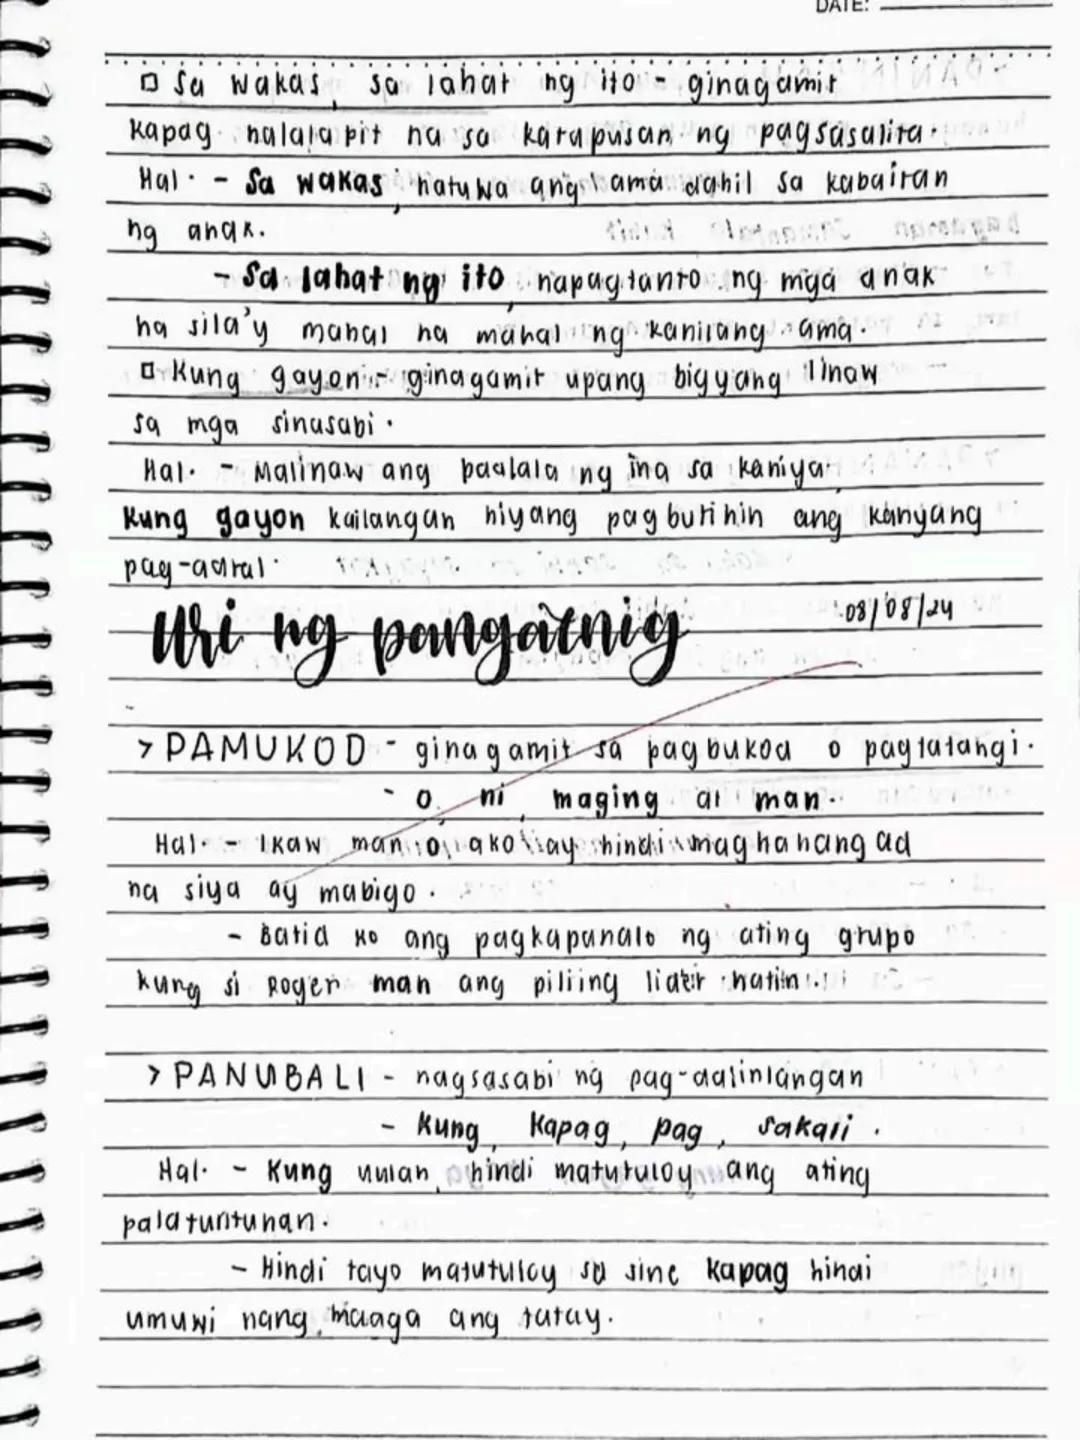 DATE:
□ Sa wakas, sa lahat ng ito - ginagamit
kapag nalalapit na sa katapusan ng pagsasalita.
Hal. - Sa wakas, natuwa ang ama dahil sa kabaitan
ng anak.
- Sa lahat ng ito, napagtanto ng mga anak
na sila'y mahal na mahal ng kanilang ama.
□ Kung gayon - ginagamit upang bigyang linaw
sa mga sinasabi.
Hal. - Malinaw ang paalala ng ina sa kaniya,
kung gayon kailangan niyang pagbutihin ang kanyang
pag-aaral.
Uri ng pangatnig
08/08/24
> PAMUKOD - ginagamit sa pagbukod o pagtatangi.
- o, ni, maging at man.
Hal. - Ikaw man o ako ay hindi maghahangad
na siya ay mabigo.
- Batid ko ang pagkapanalo ng ating grupo
kung si Roger man ang piliing lider natin.
> PANUBALI - nagsasabi ng pag-aalinlangan
- Kung, Kapag, pag, sakali.
Hal. - Kung uulan, hindi matutuloy ang ating
palatuntunan.
- Hindi tayo matutuloy sa sine kapag hindi
umuwi nang maaga ang tatay.